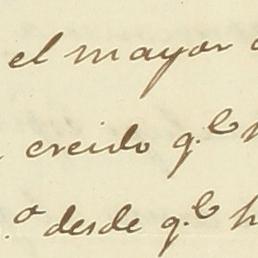 el mayor
creido q.e
.o desde q.e